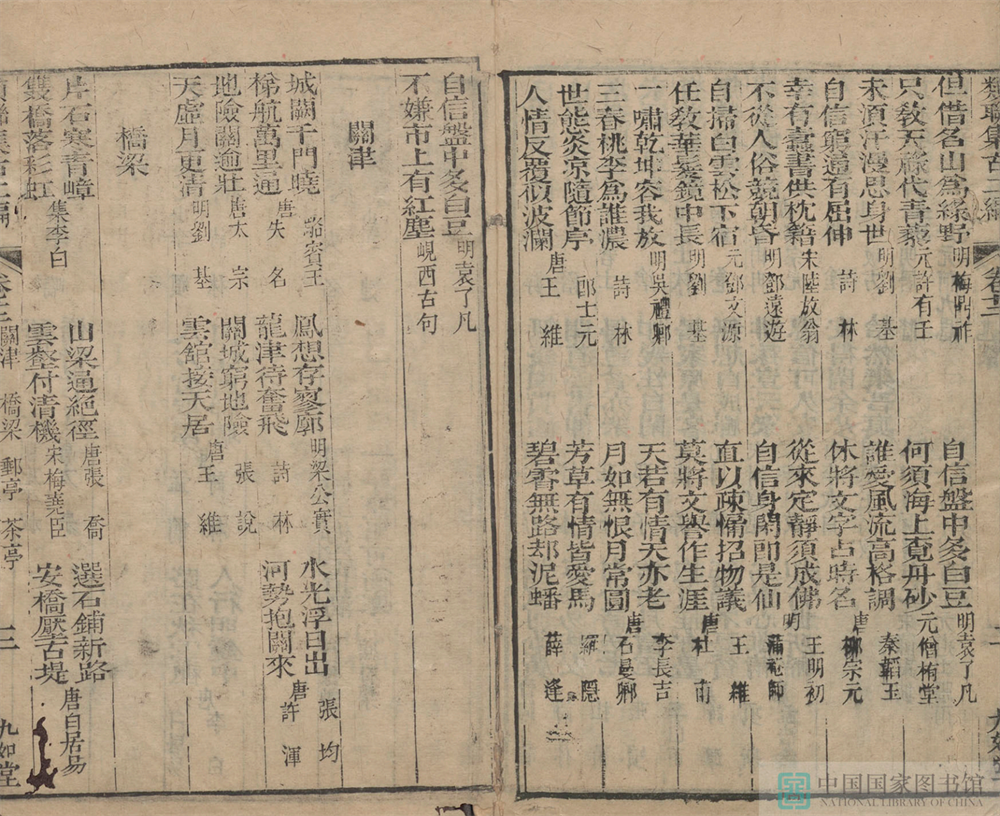 類聯集古二編 卷十三
但借名山為綠野 明梅鼎祚 自信盤中多白豆 明袁了凡
只敎天祿代青藜 元許有壬 何須海上覓丹砂 元僧栯堂
未須汗漫思身世 明劉基 誰愛風流高格調 秦韜玉
自信窮通有屈伸 詩林 休將文字占時名 唐柳宗元
幸有蠹書供枕籍 宋陸放翁 從來定靜須成佛 王明初
不從人俗競朝昏 明鄧遠遊 自信身閒卽是仙 明蒲菴師
自掃白雲松下宿 元鄧文源 直以疎慵招物議 王維
任敎華髮鏡中長 明劉基 莫將文譽作生涯 唐杜甫
一嘯乾坤容我放 明吳禮卿 天若有情天亦老 李長吉
三春桃李為誰濃 詩林 月如無恨月常圓 唐石曼卿
世態炎凉隨節序 郎士元 芳草有情皆愛馬 羅隱
人情反覆似波瀾 唐王維 碧霄無路却泥蟠 薛逢
自信盤中多白豆 明袁了凡
不嫌市上有紅塵 峴西古句
關津
城闕千門曉 駱賓王 鳳想存寥廓 明梁公實 水光浮日出 張均
梯航萬里通 唐失名 龍津待奮飛 詩林 河勢抱關來 唐許渾
地險關逾壯 唐太宗 關城窮地險 張說
天虛月更清 明劉基 雲館接天居 唐王維
橋梁
片石寒青嶂 山梁通絕徑 唐張喬 選石鋪新路
雙橋落彩虹 集李白 雲壑付清機 宋梅堯臣 安橋壓古堤 唐白居易
類聯集古二編 卷十三 關津 橋梁 郵亭 茶亭 三 九如堂
中国国家图书馆
NATIONAL LIBRARY OF CHINA